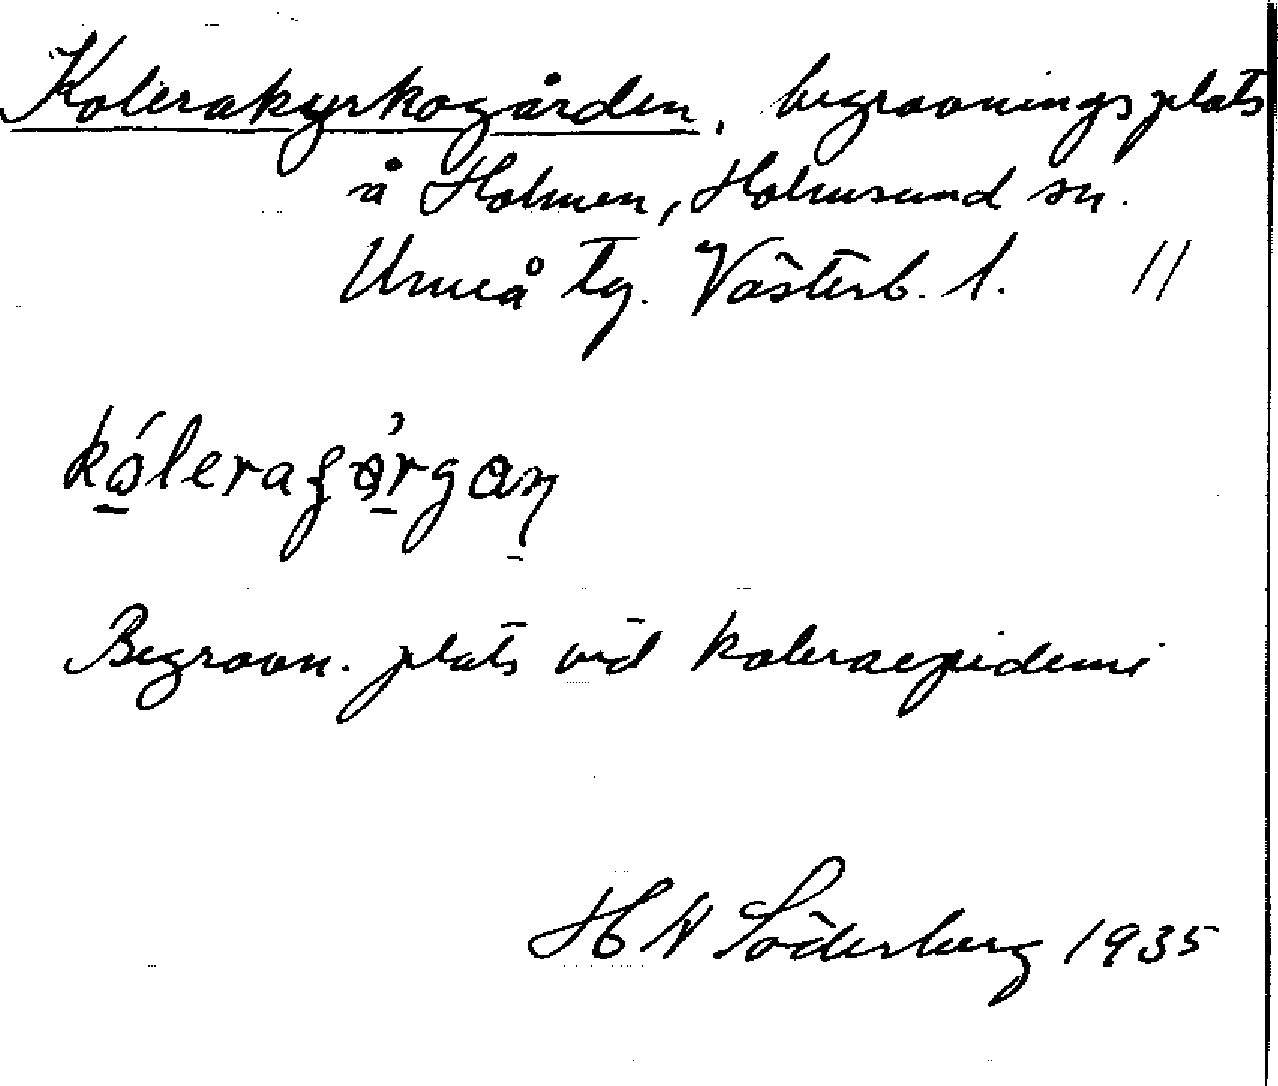 Kolerakyrkogården, begravningsplats
å Holmen, Holmsund sn.
Umeå tg. Västerb. l. 11
Begravn. plats vid koleraepidemi
H N Söderberg 1935